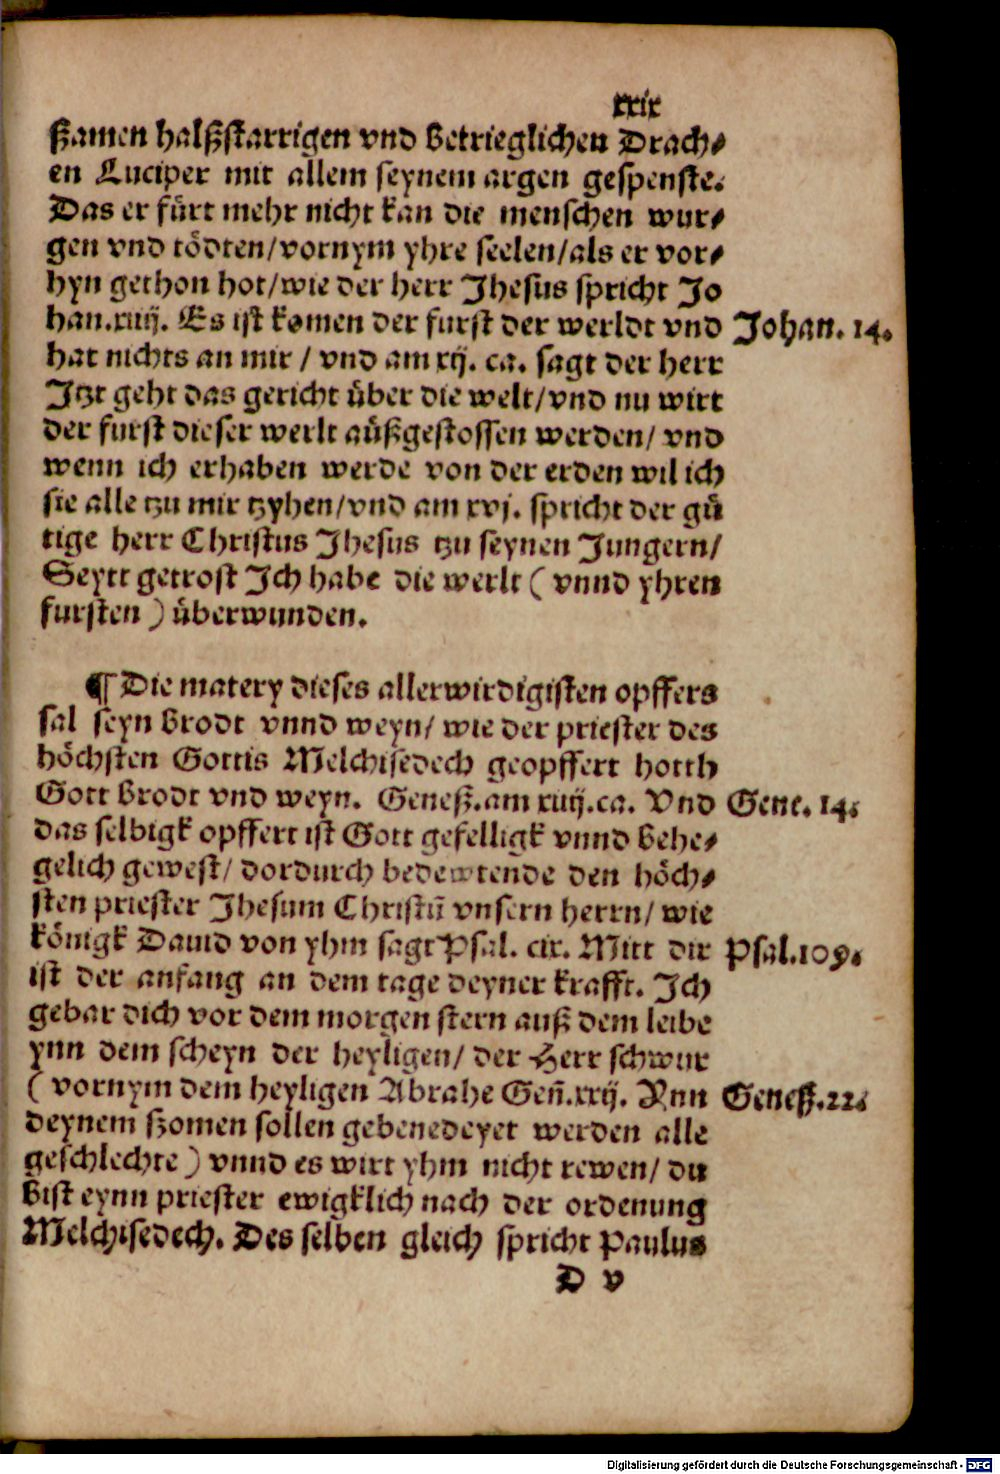 xxix
ßamen halßstarrigen vnd betrieglichen Drach⸗
en Luciper mit allem seynem argen gespenste.
Das er fürt mehr nicht kan die menschen wur⸗
gen vnd tödten/vornym yhre seelen/als er vor⸗
hyn gethon hot/wie der herr Jhesus spricht Jo
han.xiiij. Es ist komen der furst der werldt vnd
Johan. 14.
hat nichts an mir / vnd am xij. ca. sagt der herr
Jtzt geht das gericht über die welt/vnd nu wirt
der furst dieser werlt außgestossen werden/ vnd
wenn ich erhaben werde von der erden wil ich
sie alle tzu mir tzyhen/vnd am xvj. spricht der gü
tige herr Christus Jhesus tzu seynen Jungern/
Seytt getrost Jch habe die werlt ( vnnd yhren
fursten ) überwunden.
¶ Die matery dieses allerwirdigisten opffers
sal seyn brodt vnnd weyn/ wie der priester des
höchsten Gottis Melchisedech geopffert hotth
Gott brodt vnd weyn. Geneß.am xiiij.ca. Vnd
Gene. 14.
das selbigk opffert ist Gott gefelligk vnnd behe⸗
gelich gewest/ dordurch bedewtende den höch⸗
sten priester Jhesum Christū vnsern herrn/ wie
königk Dauid von yhm sagt Psal. cix. Mitt dir
Psal.109.
ist der anfang an dem tage deyner krafft. Jch
gebar dich vor dem morgen stern auß dem leibe
ynn dem scheyn der heyligen/ der Herr schwur
( vornym dem heyligen Abrahe Geñ.xxij. Ynn
Geneß.22.
deynem ßomen sollen gebenedeyet werden alle
geschlechte ) vnnd es wirt yhm nicht rewen/ du
bist eynn priester ewigklich nach der ordenung
Melchisedech. Des selben gleich spricht Paulus
D v
Digitalisierung gefördert durch die Deutsche Forschungsgemeinschaft - DFG